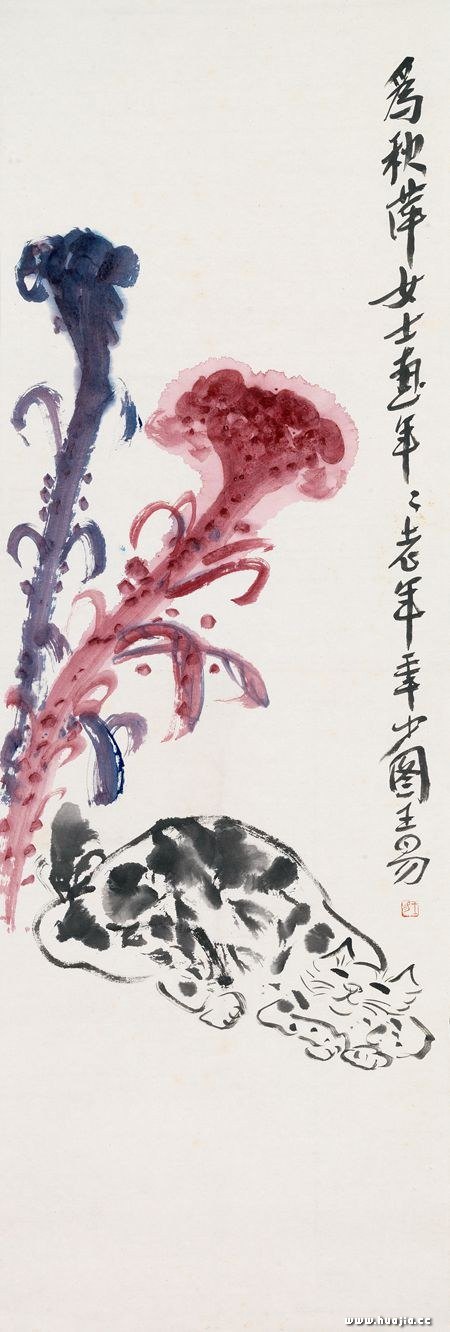 爲秋萍女士畫年〻老年年少图王易
www.huajia.cc